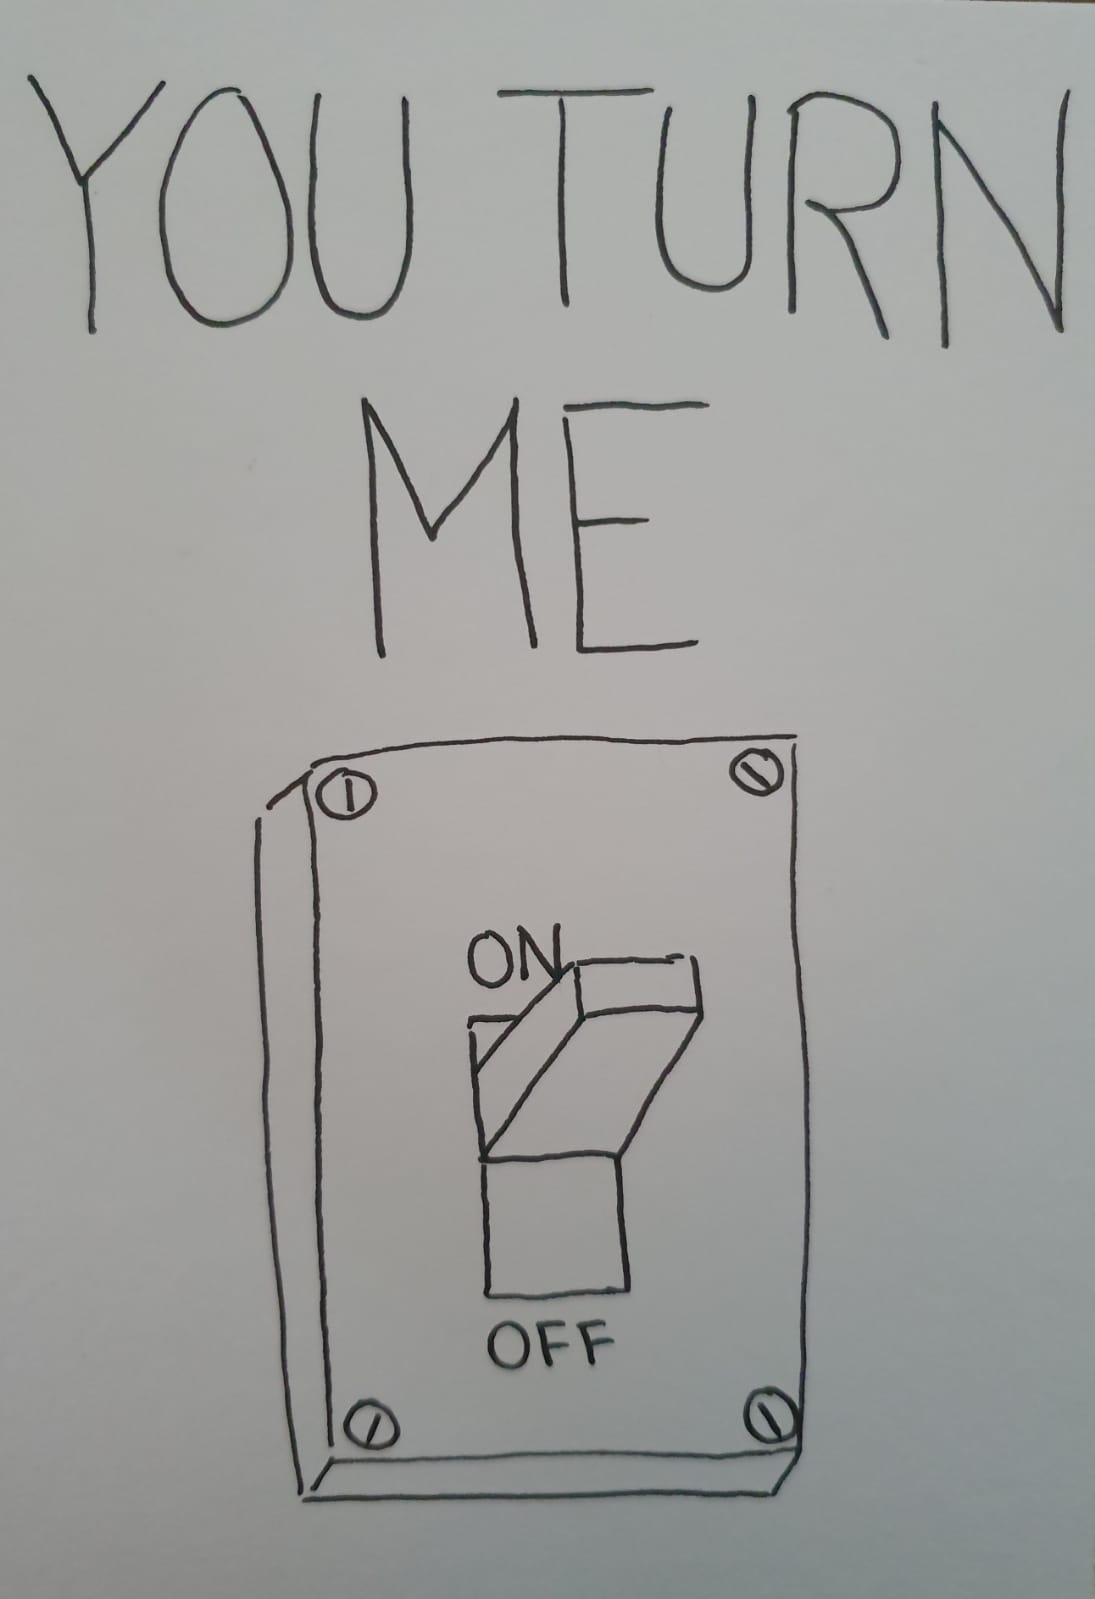 YOU TURN
ME
ON
OFF